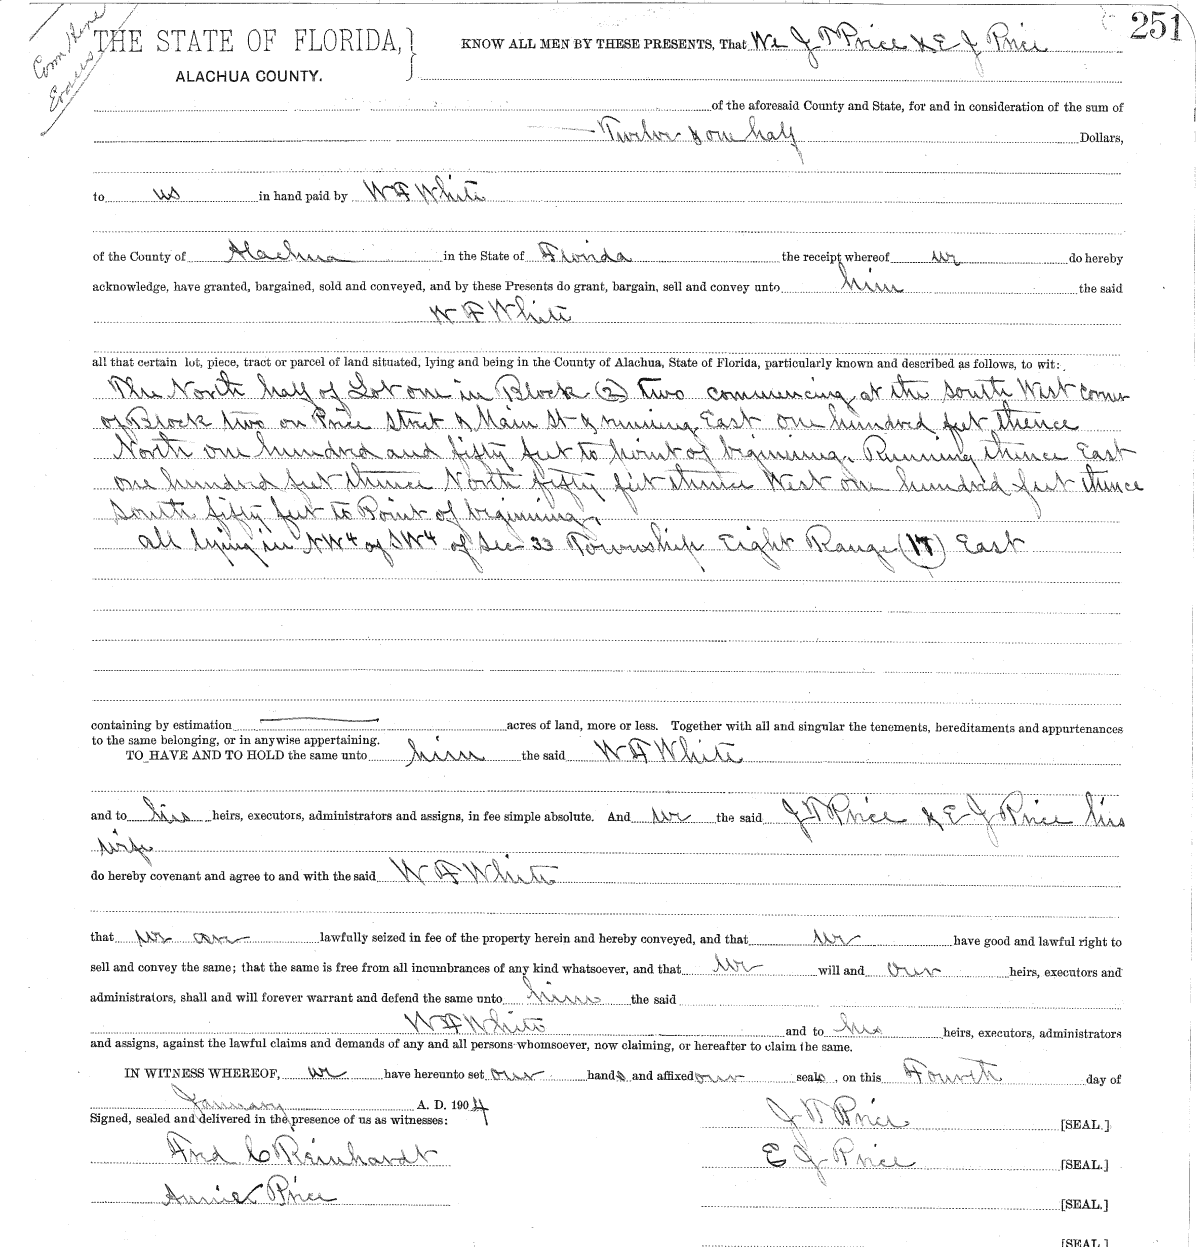 251
Com Hene
Evans
THE STATE OF FLORIDA,
ALACHUA COUNTY.
KNOW ALL MEN BY THESE PRESENTS, That We J T Price & E J Price
of the aforesaid County and State, for and in consideration of the sum of
Twelve & one half Dollars,
to us in hand paid by W F White
of the County of Alachua in the State of Florida the receipt whereof we do hereby
acknowledge, have granted, bargained, sold and conveyed, and by these Presents do grant, bargain, sell and convey unto him the said
W F White
all that certain lot, piece, tract or parcel of land situated, lying and being in the County of Alachua, State of Florida, particularly known and described as follows, to wit:
The North half of Lot one in Block (2) two commencing at the South West corner
of Block two on Price street & Main St & running East one hundred feet thence
North one hundred and fifty feet to point of biginning. Running thence East
one hundred feet thence North fifty feet thence West one hundred feet thence
South fifty feet to Point of biginning.
all lying in NW4 of SW4 of Sec 33 Township Eight Range (17) East
containing by estimation acres of land, more or less. Together with all and singular the tenements, hereditaments and appurtenances
to the same belonging, or in anywise appertaining.
TO HAVE AND TO HOLD the same unto him the said W F White
and to his heirs, executors, administrators and assigns, in fee simple absolute. And we the said J T Price & E J Price his
wife
do hereby covenant and agree to and with the said W F White
that we are lawfully seized in fee of the property herein and hereby conveyed, and that we have good and lawful right to
sell and convey the same; that the same is free from all incumbrances of any kind whatsoever, and that we will and our heirs, executors and
administrators, shall and will forever warrant and defend the same unto him the said
W F White and to his heirs, executors, administrators
and assigns, against the lawful claims and demands of any and all persons whomsoever, now claiming, or hereafter to claim the same.
IN WITNESS WHEREOF, we have hereunto set our hands and affixed our seals, on this Fourth day of
January A. D. 1904
Signed, sealed and delivered in the presence of us as witnesses:
J T Price [SEAL.]
Fred C Reinhardt
E J Price [SEAL.]
Annie Price
[SEAL.]
[SEAL.]